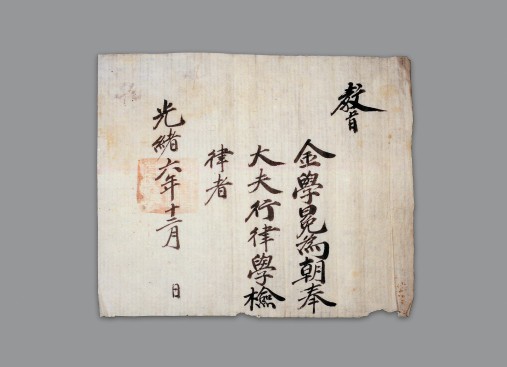 教旨
金學冕為朝奉
大夫行律學檢
律者
光緒六年十二月 日